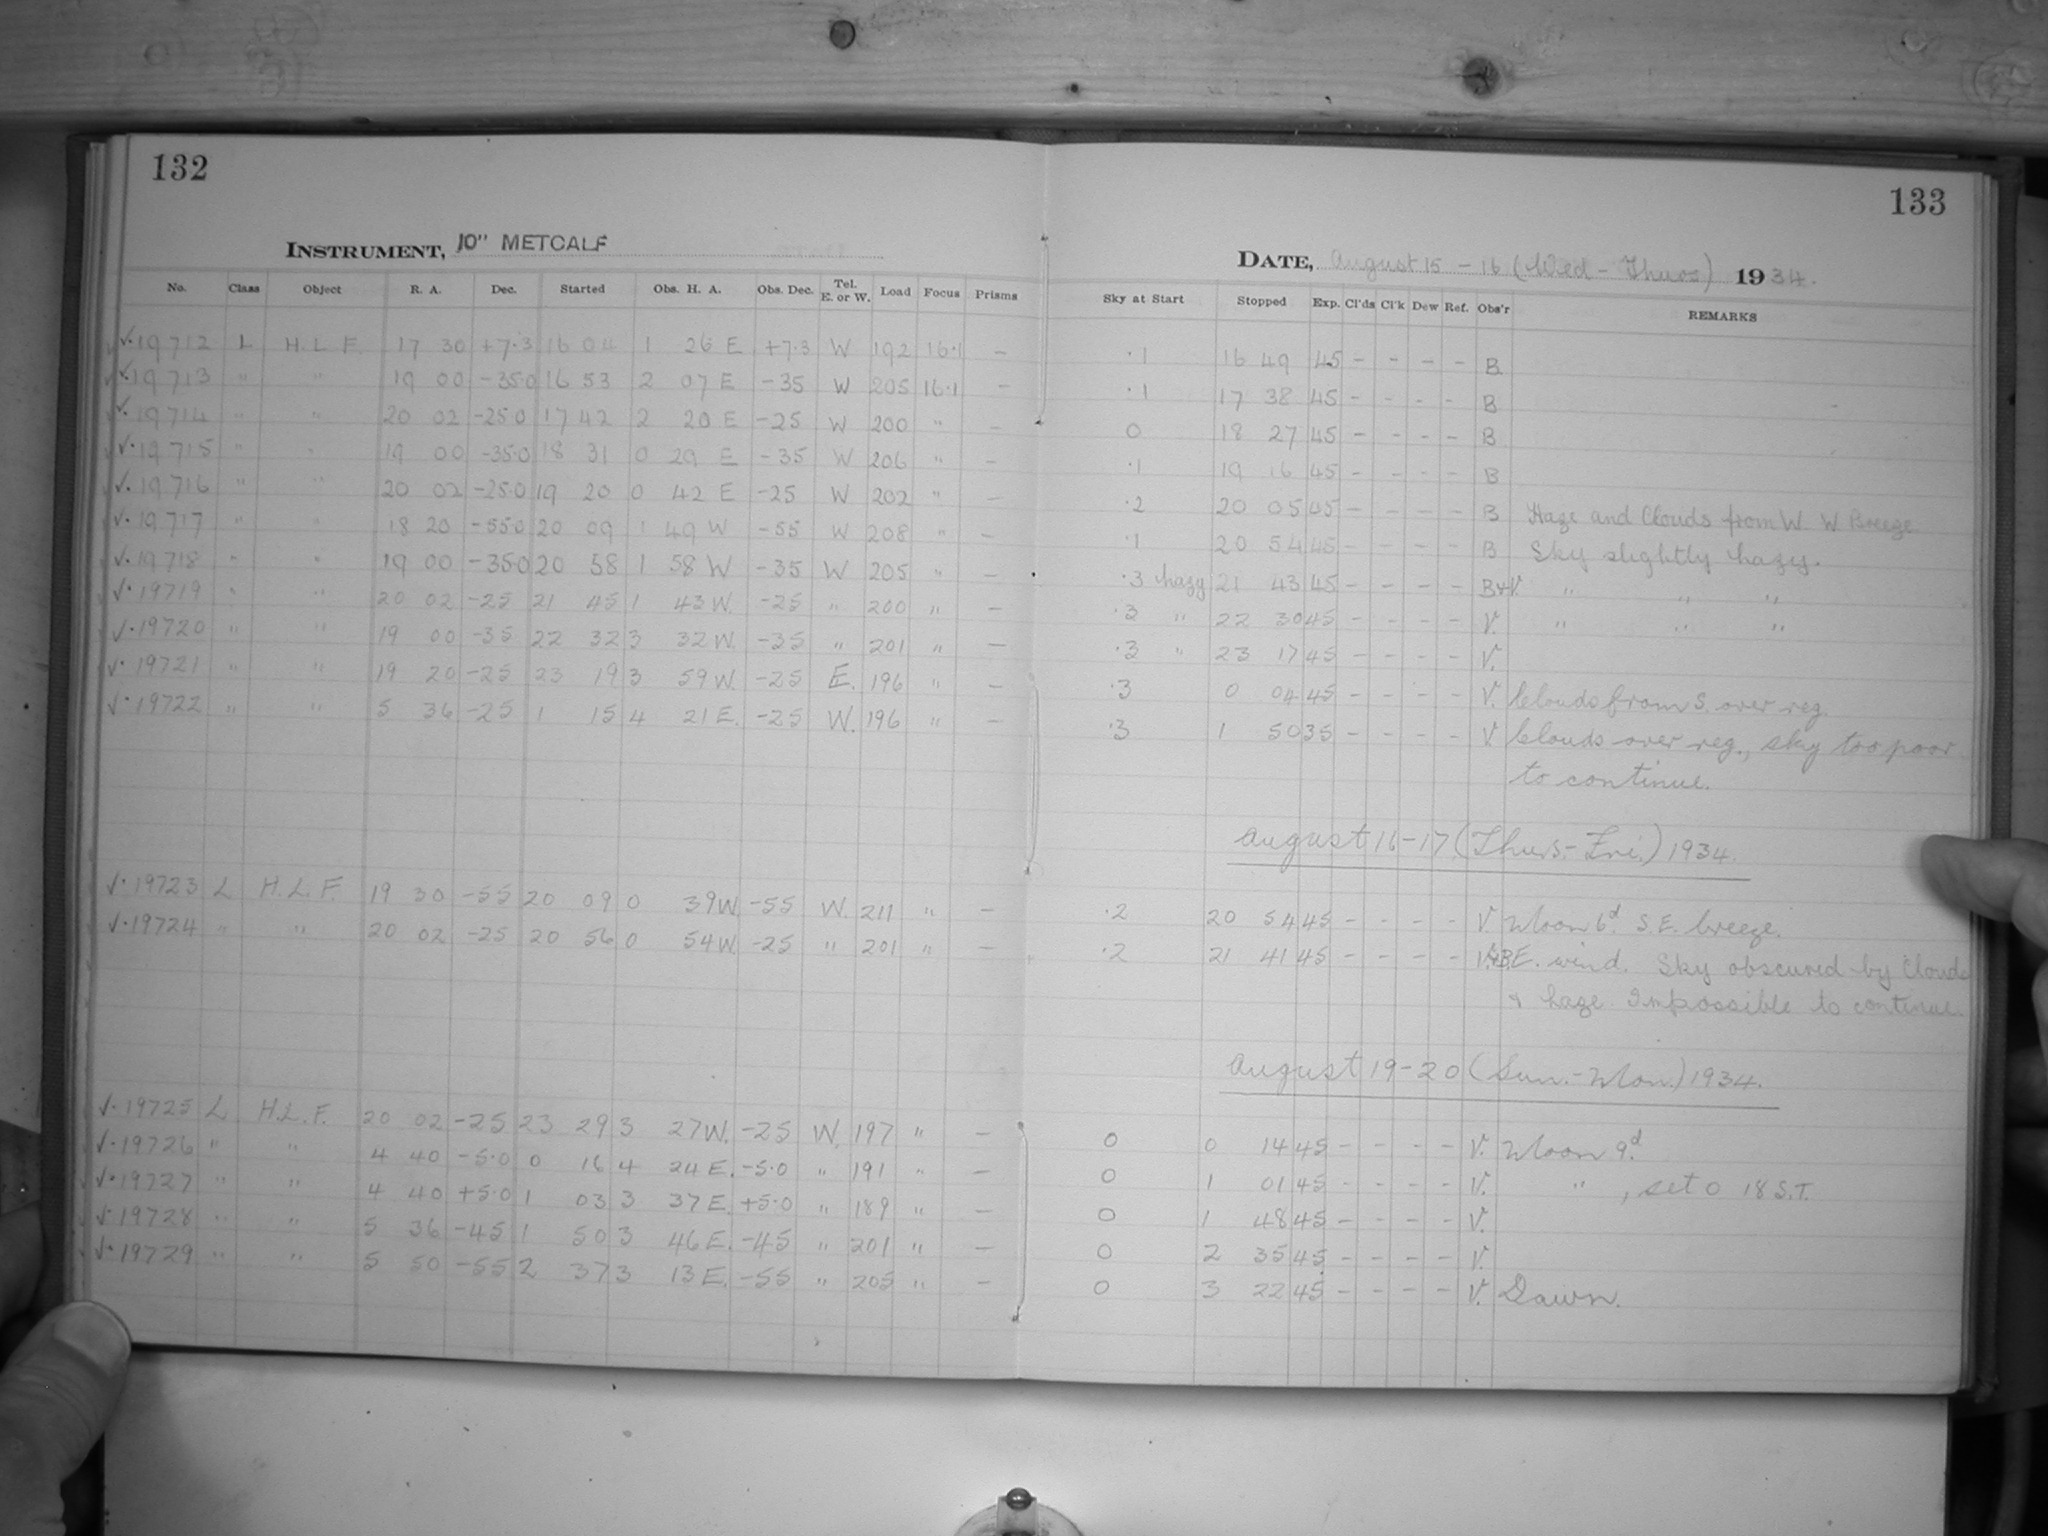 132
133
INSTRUMENT, 10" METCALF
DATE, August 15 - 16 (Wed - Thurs) 1934.
No. Class Object R. A. Dec. Started Obs. H. A. Obs. Dec. Tel. E. or W. Load Focus Prisms Sky at Start Stopped Exp. Cl'ds Cl'k Dew Ref. Obs'r REMARKS
√. 19712 L H. L. F. 17 30 +7.3 16 04 1 26 E +7.3 W 192 16.1 — .1 16 49 45 - - - - B.
√. 19713 " " 19 00 -35.0 16 53 2 07 E -35 W 205 16.1 — .1 17 38 45 - - - - B
√. 19714 " " 20 02 -25.0 17 42 2 20 E -25 W 200 " — 0 18 27 45 - - - - B
√. 19715 " " 19 00 -35.0 18 31 0 29 E -35 W 206 " — .1 19 16 45 - - - - B
√. 19716 " " 20 02 -25.0 19 20 0 42 E -25 W 202 " — .2 20 05 45 - - - - B Haze and Clouds from W. W Breeze
√. 19717 " " 18 20 -55.0 20 09 1 49 W -55 W 208 " — .1 20 54 45 - - - - B Sky slightly hazy.
√. 19718 " " 19 00 -35.0 20 58 1 58 W -35 W 205 " — .3 hazy 21 43 45 - - - - B+V. " " "
√. 19719 " " 20 02 -25 21 45 1 43 W. -25 " 200 " — .3 " 22 30 45 - - - - V. " " "
√. 19720 " " 19 00 -35 22 32 3 32 W. -35 " 201 " — .3 " 23 17 45 - - - - V.
√. 19721 " " 19 20 -25 23 19 3 59 W. -25 E. 196 " — .3 0 04 45 - - - - V. Clouds from S. over reg.
√. 19722 " " 5 36 -25 1 15 4 21 E. -25 W. 196 " — .3 1 50 35 - - - - V. Clouds over reg., sky too poor
to continue.
August 16-17 (Thurs.-Fri.) 1934.
√. 19723 L H. L. F. 19 30 -55 20 09 0 39 W. -55 W. 211 " — .2 20 54 45 - - - - V Moon 6d. S.E. breeze.
√. 19724 " " 20 02 -25 20 56 0 54 W. -25 " 201 " — .2 21 41 45 - - - - V.&B. E. wind. Sky obscured by Clouds
& haze. Impossible to continue.
August 19-20 (Sun.-Mon.) 1934.
√. 19725 L H.L.F. 20 02 -25 23 29 3 27 W. -25 W. 197 " — 0 0 14 45 - - - - V. Moon 9d.
√. 19726 " " 4 40 -5.0 0 16 4 24 E. -5.0 " 191 " — 0 1 01 45 - - - - V. " , set 0 18 S.T.
√. 19727 " " 4 40 +5.0 1 03 3 37 E. +5.0 " 189 " — 0 1 48 45 - - - - V.
√. 19728 " " 5 36 -45 1 50 3 46 E. -45 " 201 " — 0 2 35 45 - - - - V.
√. 19729 " " 5 50 -55 2 37 3 13 E. -55 " 205 " — 0 3 22 45 - - - - V. Dawn.